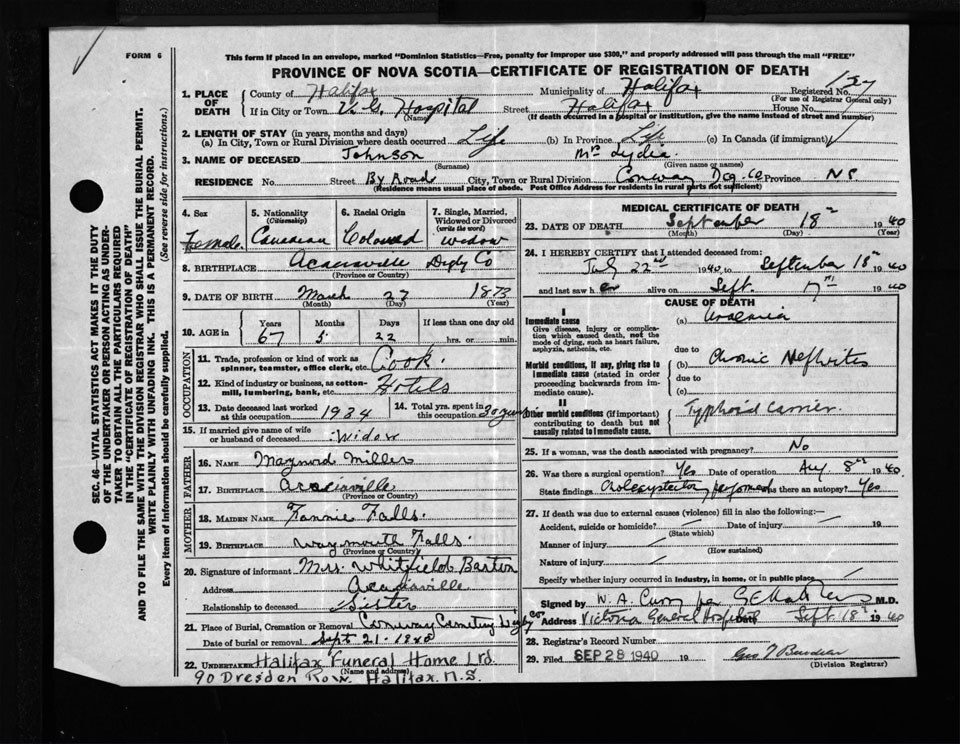 FORM 6
This form if placed in an envelope, marked "Dominion Statistics—Free, penalty for improper use $300," and properly addressed will pass through the mail "FREE"
PROVINCE OF NOVA SCOTIA—CERTIFICATE OF REGISTRATION OF DEATH
1. PLACE OF DEATH
County of Halifax Municipality of Halifax Registered No.
(For use of Registrar General only)
If in City or Town V. G. Hospital Street Halifax House No.
(Name) (If death occurred in a hospital or institution, give the name instead of street and number)
2. LENGTH OF STAY (in years, months and days)
(a) In City, Town or Rural Division where death occurred Life (b) In Province Life (c) In Canada (if immigrant)
3. NAME OF DECEASED Johnson Mrs Lydia
(Surname) (Given name or names)
RESIDENCE No. Street By Road City, Town or Rural Division Conway Dig. Co Province N S.
(Residence means usual place of abode. Post Office Address for residents in rural parts not sufficient)
4. Sex
Female
5. Nationality
(Citizenship)
Canadian
6. Racial Origin
Coloured
7. Single, Married, Widowed or Divorced
(write the word)
widow
8. BIRTHPLACE Acaciaville Digby Co
(Province or Country)
9. DATE OF BIRTH March 27 1873
(Month) (Day) (Year)
10. AGE in
Years Months Days If less than one day old
67 5 22 hrs. or min.
OCCUPATION
11. Trade, profession or kind of work as spinner, teamster, office clerk, etc. Cook.
12. Kind of industry or business, as cotton-mill, lumbering, bank, etc. Hotels
13. Date deceased last worked at this occupation 1934
14. Total yrs. spent in this occupation 20 years
15. If married give name of wife or husband of deceased Widow
FATHER
16. NAME Maynard Miller
17. BIRTHPLACE Acaciaville
(Province or Country)
MOTHER
18. MAIDEN NAME Fannie Falls.
19. BIRTHPLACE Waymouth Falls.
(Province or Country)
20. Signature of informant Mrs. Whitfield Barton
Address Acaciaville
Relationship to deceased Sister
21. Place of Burial, Cremation or Removal Conway Cemetery Digby Co
Date of burial or removal Sept 21 -
22. UNDERTAKER Halifax Funeral Home Ltd.
(Name and address)
90 Dresden Row. Halifax. N.S.
MEDICAL CERTIFICATE OF DEATH
23. DATE OF DEATH September 18th 1940
(Month) (Day) (Year)
24. I HEREBY CERTIFY that I attended deceased from:
July 22nd 1940 to September 18th 1940
and last saw her alive on Sept. 1940
CAUSE OF DEATH
I
Immediate cause
Give disease, injury or complication which caused death, not the mode of dying, such as heart failure, asphyxia, asthenia, etc.
(a) Uraemia
due to
Morbid conditions, if any, giving rise to immediate cause (stated in order proceeding backwards from immediate cause).
(b) Chronic Nephritis
due to
(c)
II
Other morbid conditions (if important) contributing to death but not causally related to immediate cause.
Typhoid Carrier.
25. If a woman, was the death associated with pregnancy? No
26. Was there a surgical operation? Yes Date of operation Aug. 8th 1940
State findings performed Was there an autopsy? Yes
27. If death was due to external causes (violence) fill in also the following:—
Accident, suicide or homicide? Date of injury 19
(State which)
Manner of injury
(How sustained)
Nature of injury
Specify whether injury occurred in industry, in home, or in public place
Signed by W. A. Curry per M.D.
Address Victoria General Hospital Date Sept. 18th 1940
28. Registrar's Record Number
29. Filed SEP 28 1940 19
(Division Registrar)
SEC. 46—VITAL STATISTICS ACT MAKES IT THE DUTY OF THE UNDERTAKER OR PERSON ACTING AS UNDERTAKER TO OBTAIN ALL THE PARTICULARS REQUIRED IN THE "CERTIFICATE OF REGISTRATION OF DEATH" AND TO FILE THE SAME WITH THE DIVISION REGISTRAR WHO SHALL ISSUE THE BURIAL PERMIT.
WRITE PLAINLY WITH UNFADING INK. THIS IS A PERMANENT RECORD.
Every item of information should be carefully supplied. (See reverse side for instructions.)